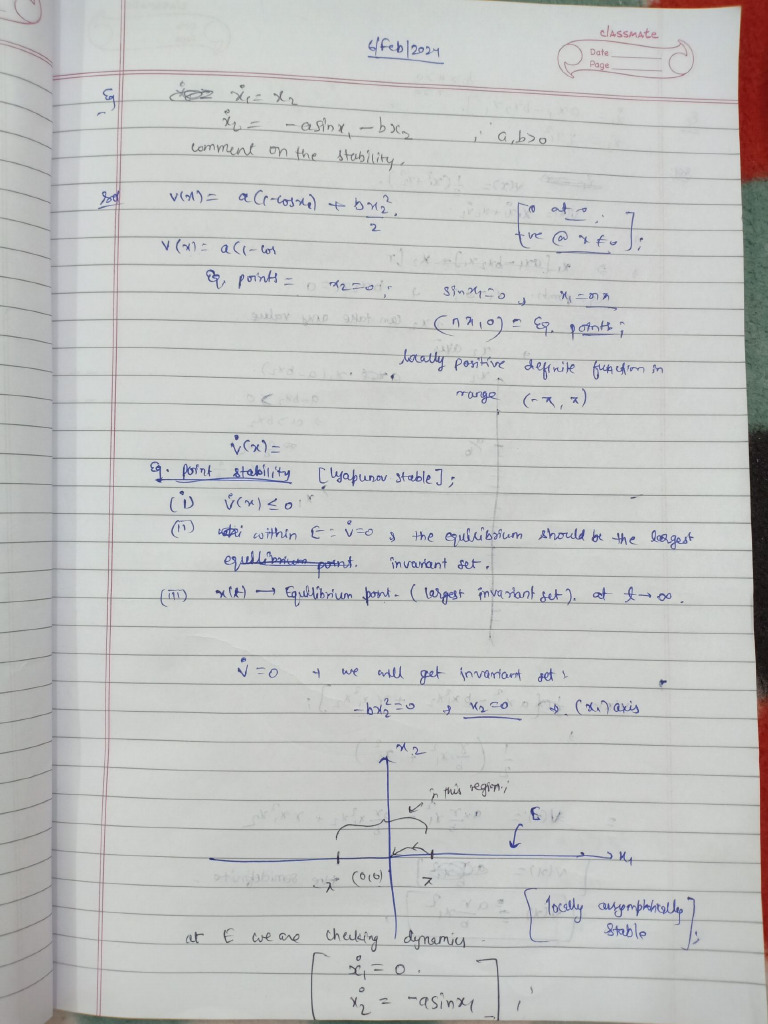 6/Feb/2024
classmate
Date
Page
Eg
ẋ₁ = x₂
ẋ₂ = -asinx₁ - bx₂ ; a,b>0
comment on the stability.
Sol V(x) = a(1-cosx₁) + bx₂²/2. [0 at 0, +ve @ x≠0];
V(x) = a(1-cos
Eq. points = x₂=0; sinx₁=0, x₁=nπ
(nπ,0) = Eq. points;
locally positive definite function in
range (-π, π)
V̇(x) =
Eq. point stability [Lyapunov stable];
(i) V̇(x) ≤ 0
(ii) within E = V̇=0, the equilibrium should be the largest
equilibrium point. invariant set.
(iii) x(t) → Equilibrium point. (largest invariant set). at t→∞.
V̇ = 0 → we will get invariant set:
-bx₂² = 0, x₂=0 → (x₁) axis
x₂
in this region;
E
x₁
-π (0,0) π
[locally asymptotically
stable];
at E we are checking dynamics.
[ẋ₁ = 0.
ẋ₂ = -asinx₁];